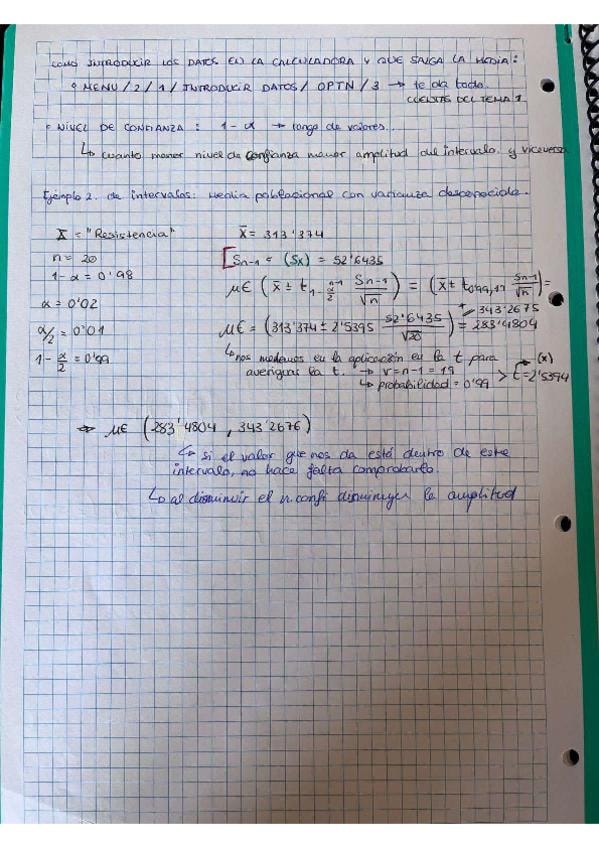 COMO INTRODUCIR LOS DATOS EN LA CALCULADORA Y QUE SALGA LA MEDIA:
° MENU / 2 / 1 / INTRODUCIR DATOS / OPTN / 3 → te da todo.
CUENTAS DEL TEMA 1
° NIVEL DE CONFIANZA : 1 - α → rango de valores..
↳ cuanto menor nivel de confianza menor amplitud del intervalo. y viceversa
Ejemplo 2. de intervalos: Media poblacional con varianza desconocida.
X = "Resistencia"
n = 20
1 - α = 0'98
α = 0'02
α/2 = 0'01
1 - α/2 = 0'99
x̄ = 313'374
Sn-1 = (Sx) = 52'6435
μ ∈ (x̄ ± t 1-α/2 n-1 Sn-1/√n) = (x̄ ± t0'99,19 Sn-1/√n) =
μ ∈ = (313'374 ± 2'5395 52'6435/√20) = + 343'2675 - 283'4804
↳ nos metemos en la aplicación en la t para
averiguar la t. → v = n-1 = 19
↳ probabilidad = 0'99 > t = 2'5394 (x)
⇒ μ ∈ (283'4804 , 343'2676)
↳ si el valor que nos da está dentro de este
intervalo, no hace falta comprobarlo.
↳ al disminuir el n. confi disminuye la amplitud